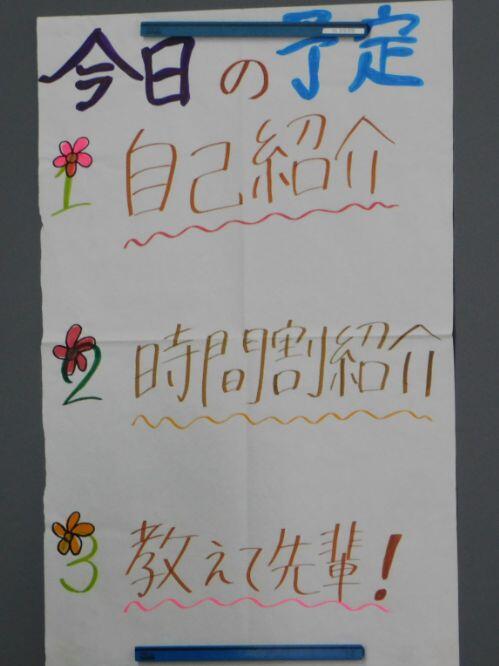 今日の予定
1 自己紹介
2 時間割紹介
3 教えて先輩!